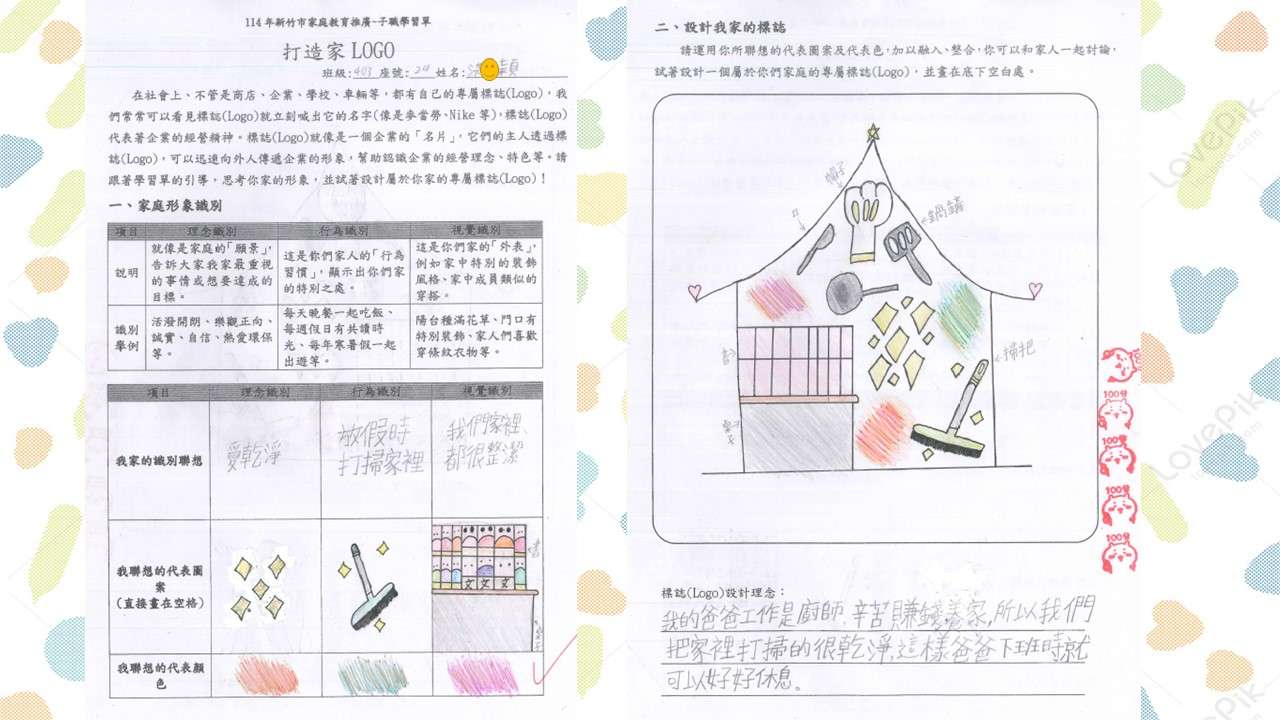 114 年新竹市家庭教育推廣-子職學習單
打造家 LOGO
班級:403 座號:24 姓名:
在社會上、不管是商店、企業、學校、車輛等，都有自己的專屬標誌(Logo)，我
們常常可以看見標誌(Logo)就立刻喊出它的名字(像是麥當勞、Nike 等)，標誌(Logo)
代表著企業的經營精神。標誌(Logo)就像是一個企業的「名片」，它們的主人透過標
誌(Logo)，可以迅速向外人傳遞企業的形象，幫助認識企業的經營理念、特色等。請
跟著學習單的引導，思考你家的形象，並試著設計屬於你家的專屬標誌(Logo)！
一、家庭形象識別
項目 理念識別 行為識別 視覺識別
說明
就像是家庭的「願景」，
告訴大家我家最重視
的事情或想要達成的
目標。
這是你們家人的「行為
習慣」，顯示出你們家
的特別之處。
這是你們家的「外表」，
例如家中特別的裝飾
風格、家中成員類似的
穿搭。
識別
舉例
活潑開朗、樂觀正向、
誠實、自信、熱愛環保
等。
每天晚餐一起吃飯、
每週假日有共讀時
光、每年寒暑假一起
出遊等。
陽台種滿花草、門口有
特別裝飾、家人們喜歡
穿條紋衣物等。
項目 理念識別 行為識別 視覺識別
我家的識別聯想
愛乾淨
放假時
打掃家裡
我們家裡、
都很整潔
我聯想的代表圖
案
(直接畫在空格)
文 文 文
書
桌子
我聯想的代表顏
色
二、設計我家的標誌
請運用你所聯想的代表圖案及代表色，加以融入、整合，你可以和家人一起討論，
試著設計一個屬於你們家庭的專屬標誌(Logo)，並畫在底下空白處。
帽子
刀
鍋鏟
掃把
書
桌子
100分
100分
100分
100分
標誌(Logo)設計理念：
我的爸爸工作是廚師,辛苦賺錢養家,所以我們
把家裡打掃的很乾淨,這樣爸爸下班時就
可以好好休息。
LovePik
LovePik
LovePik